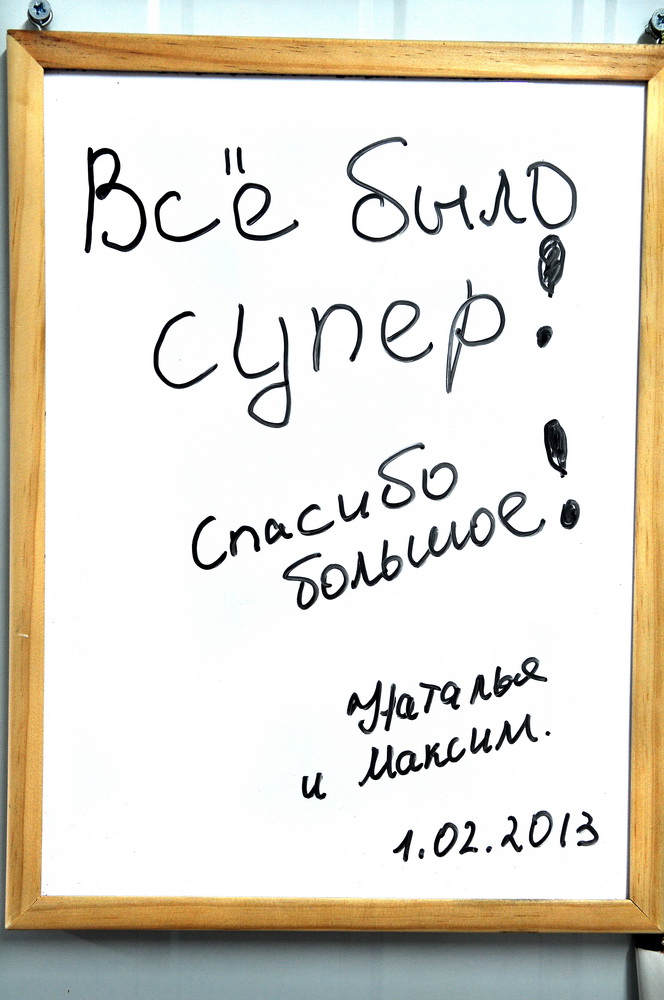 Всё было
супер!
Спасибо
большое!
Наталья
и Максим.
1.02.2013